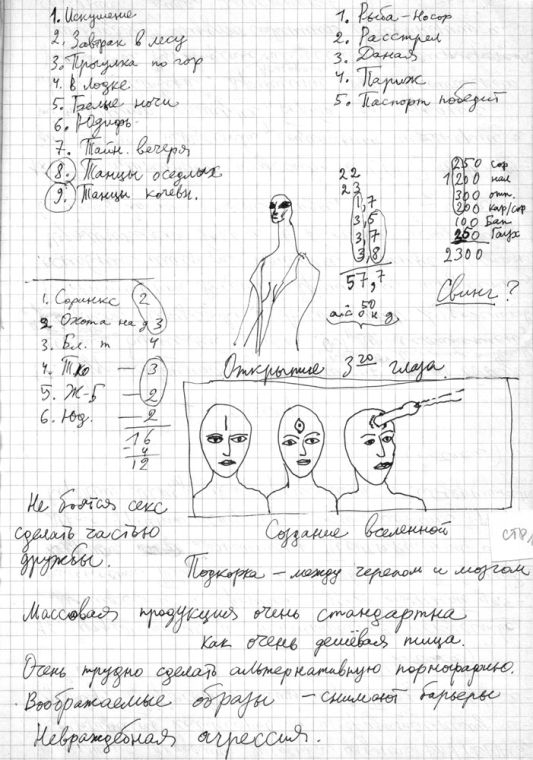 1. Искушение
2. Завтрак в лесу
3. Прогулка по гор
4. В лодке
5. Белые ночи
6. Юдифь
7. Тайн. вечеря
8. Танцы оседлых
9. Танцы кочевн.
1. Рыба-Носор
2. Расстрел
3. Даная
4. Париж
5. Паспорт победит
22
23
1,7
3,5
3,7
3,8
57,7
50
250 сор
1 200 нал
300 отп
200 кар/сор
100 Бап
250 Гаух
2300
Свинг?
1. Соринкс 2
2. Охота на д 3
3. Бл. т 4
4. Тко — 3
5. Ж-Б — 2
6. Юд. — 2
16
4
12
Открытие 3го глаза
Не боятся секс
сделать частью
дружбы.
Создание вселенной
стр
Подкорка — между черепом и мозгом
Массовая продукция очень стандартна
как очень дешёвая пища.
Очень трудно сделать альтернативную порнографию.
Воображаемые образы — снимают барьеры
Невраждебная агрессия.